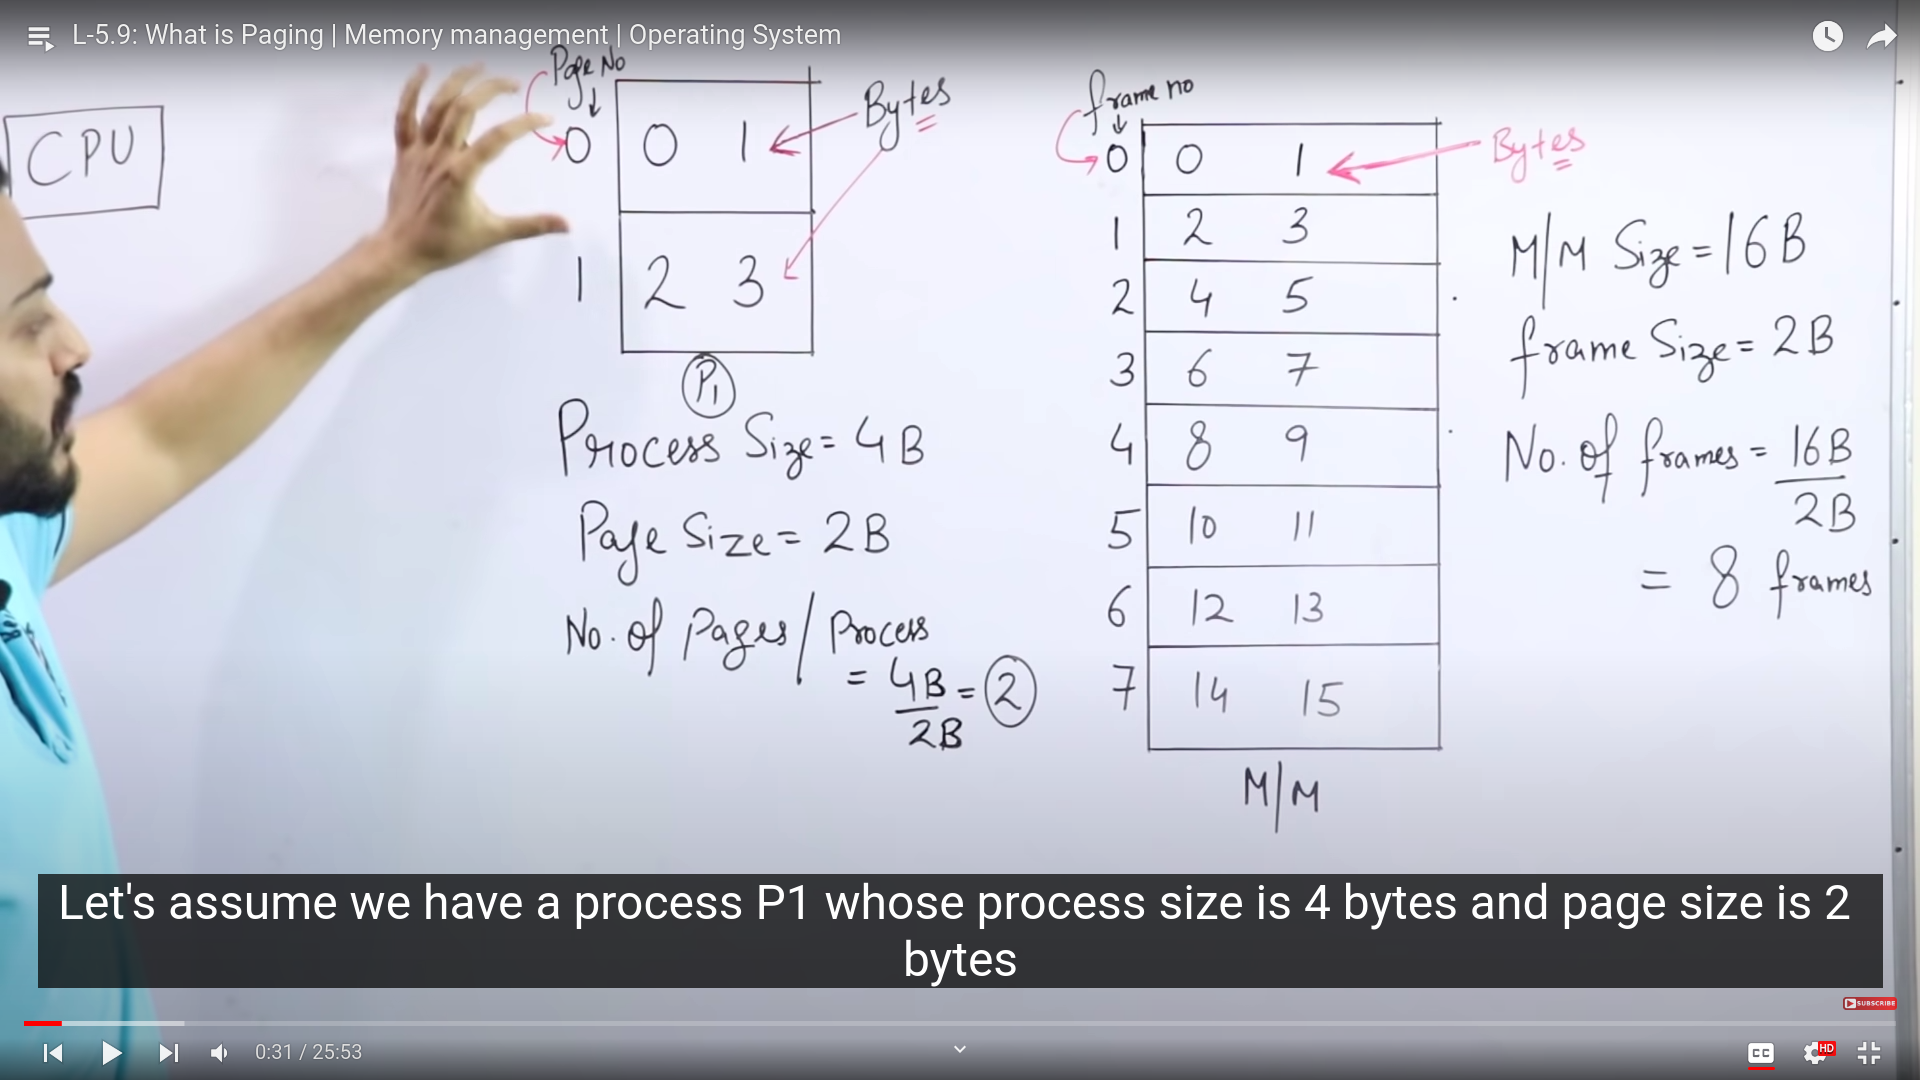 L-5.9: What is Paging | Memory management | Operating System
CPU
Page No
0 0 1
1 2 3
Bytes
P1
Process Size = 4B
Page Size = 2B
No. of Pages / Process
= 4B = 2
2B
frame no
0 0 1
1 2 3
2 4 5
3 6 7
4 8 9
5 10 11
6 12 13
7 14 15
M/M
Bytes
M/M Size = 16B
frame Size = 2B
No. of frames = 16B
2B
= 8 frames
Let's assume we have a process P1 whose process size is 4 bytes and page size is 2
bytes
SUBSCRIBE
0:31 / 25:53
CC
HD